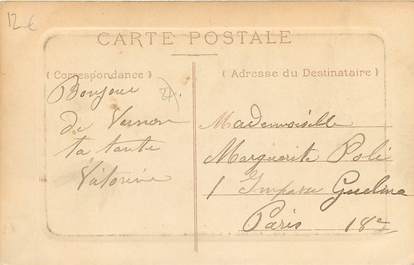 12€
CARTE POSTALE
(Correspondance)
(Adresse du Destinataire)
Bonjour
de Vernon
ta tante
Victorine
Mademoiselle
Marguerite Poli
1 Impasse Guelma
Paris 18e